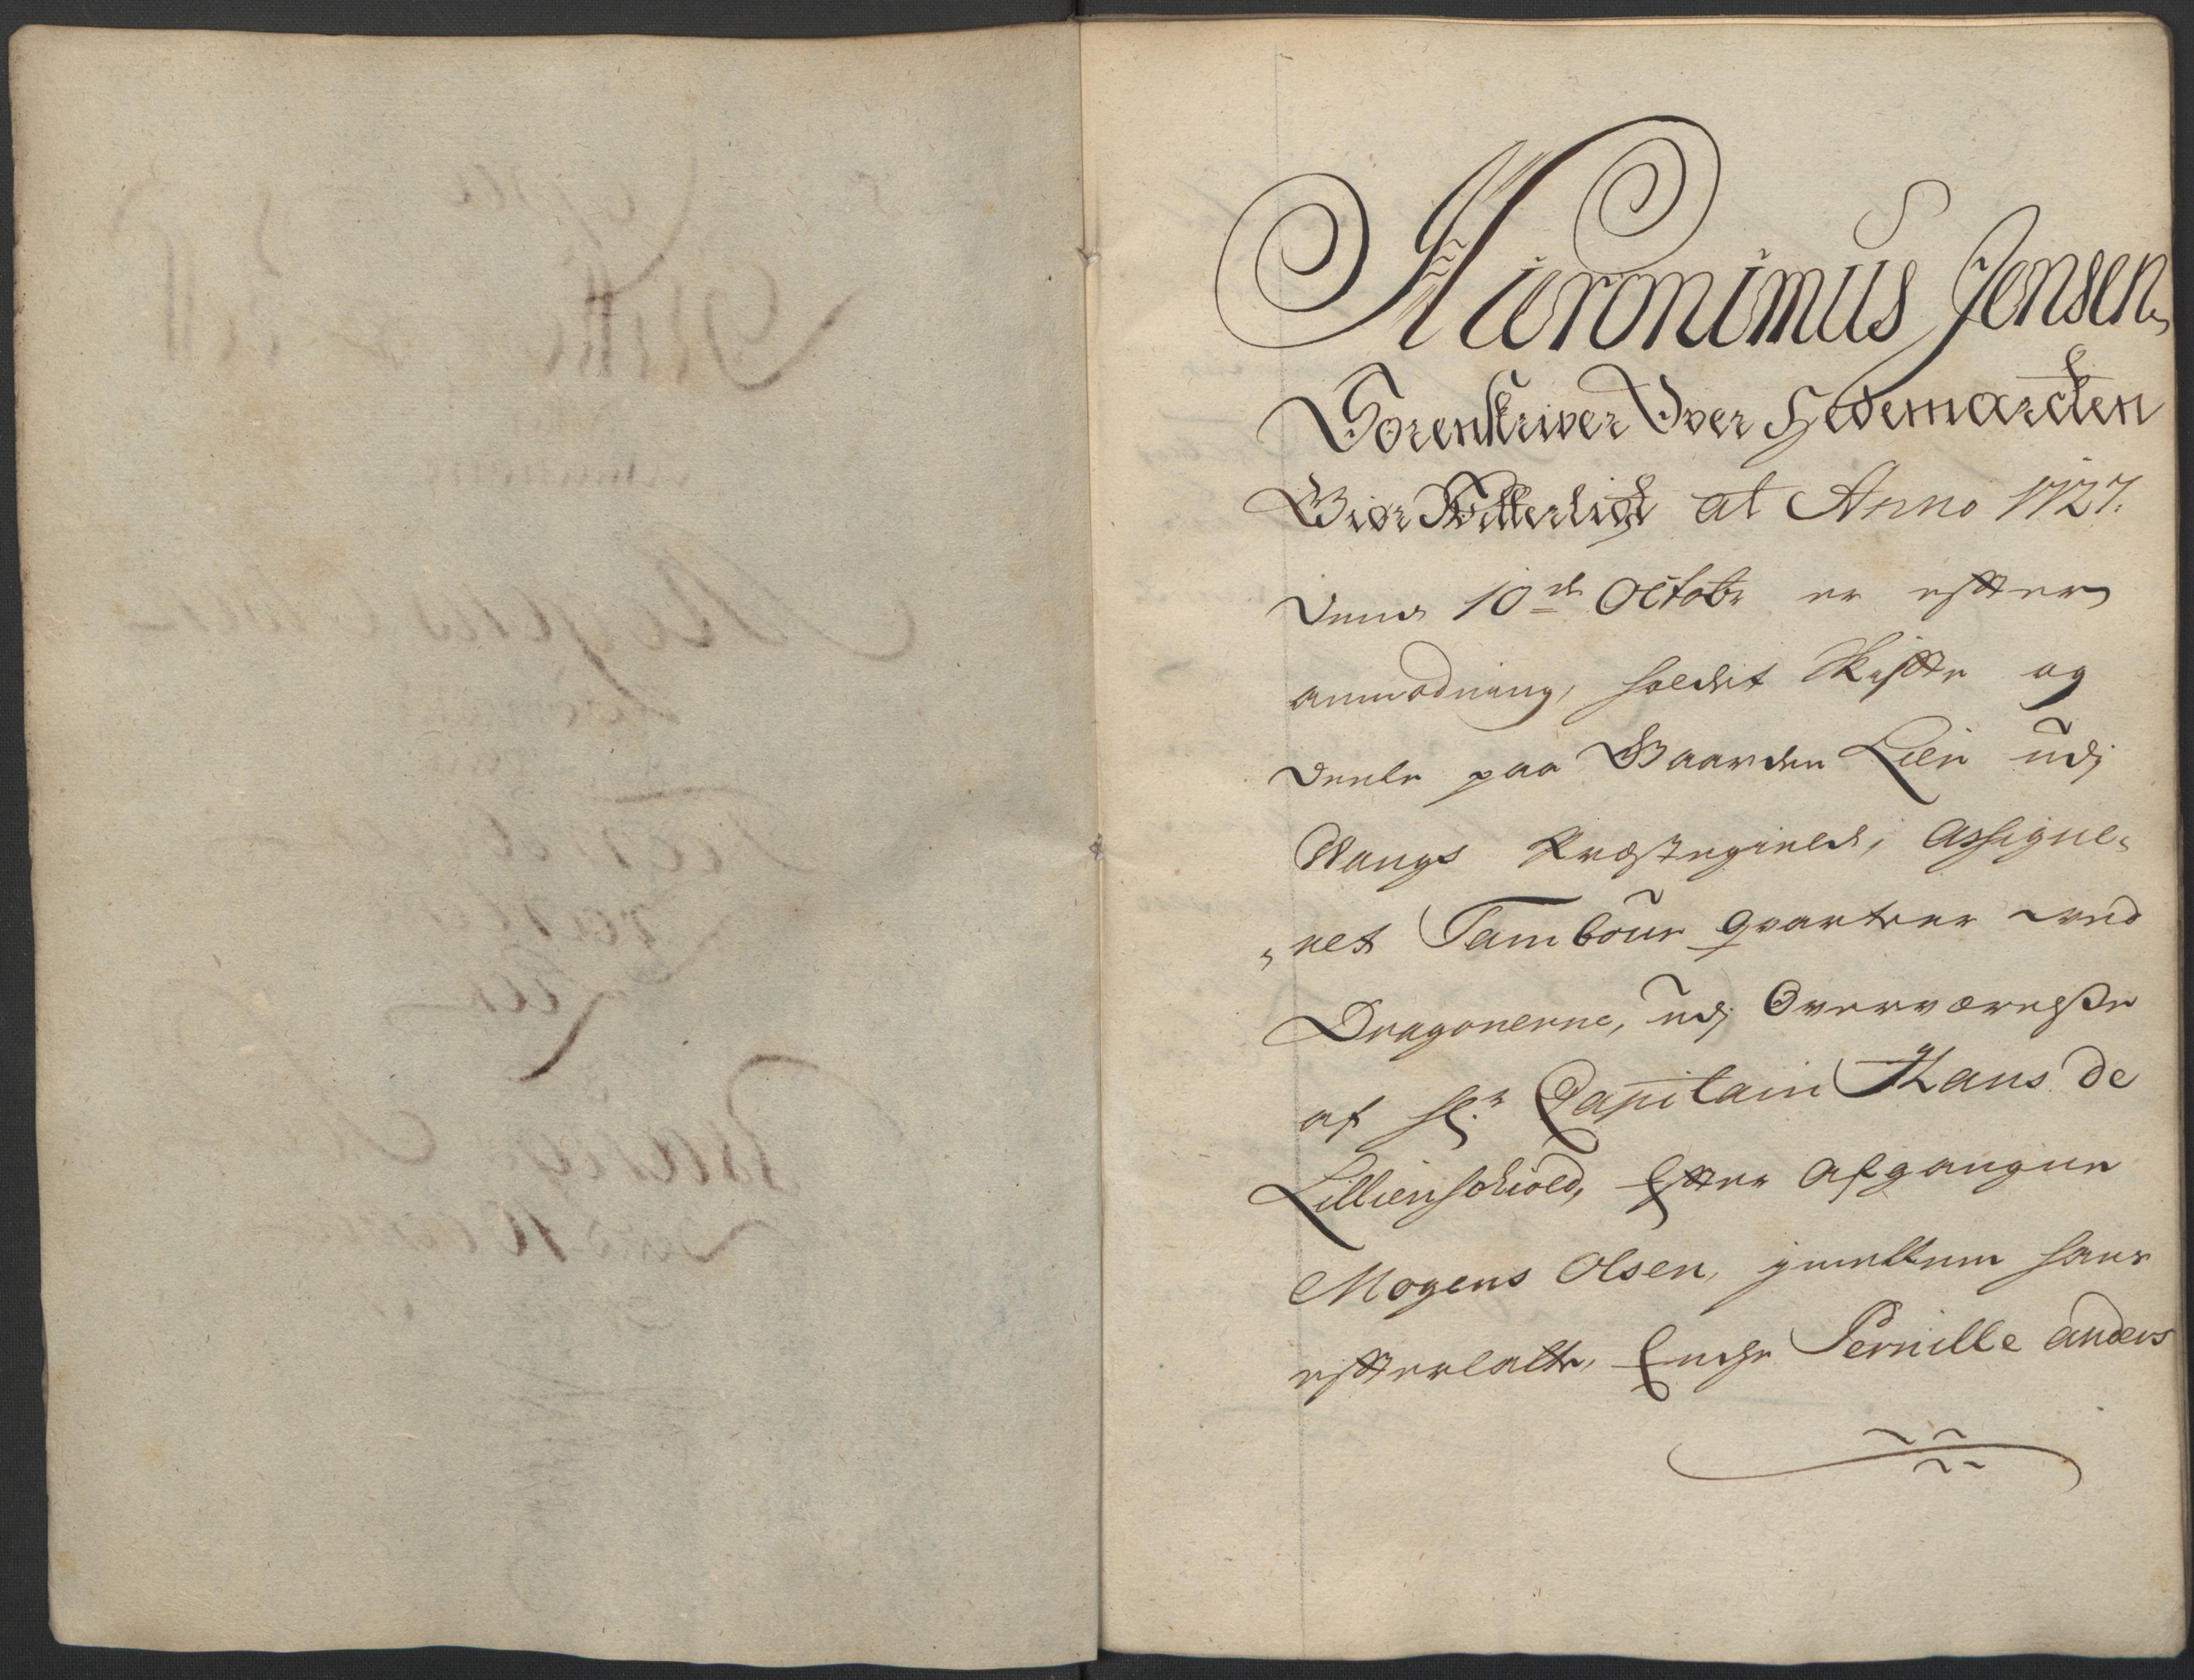 Hieronimus Jensen
Sorenskriver Over Hedemarcken
Giør Vitterligt at Anno 1727.
Dend 10de Octobr er efter
anmodning, holdet Skifte og
Deele paa Gaarden Lien udj
Wangs Præstegield, Assigne-
ret Tambour qvarteer ved
Dragonerne, udj Overværelse
af Hr. Capitain Hans de
Lillienschiold, Efter Afgangne
Mogens Olsen, imellem hans
efterlatte, Enche Pernille anders